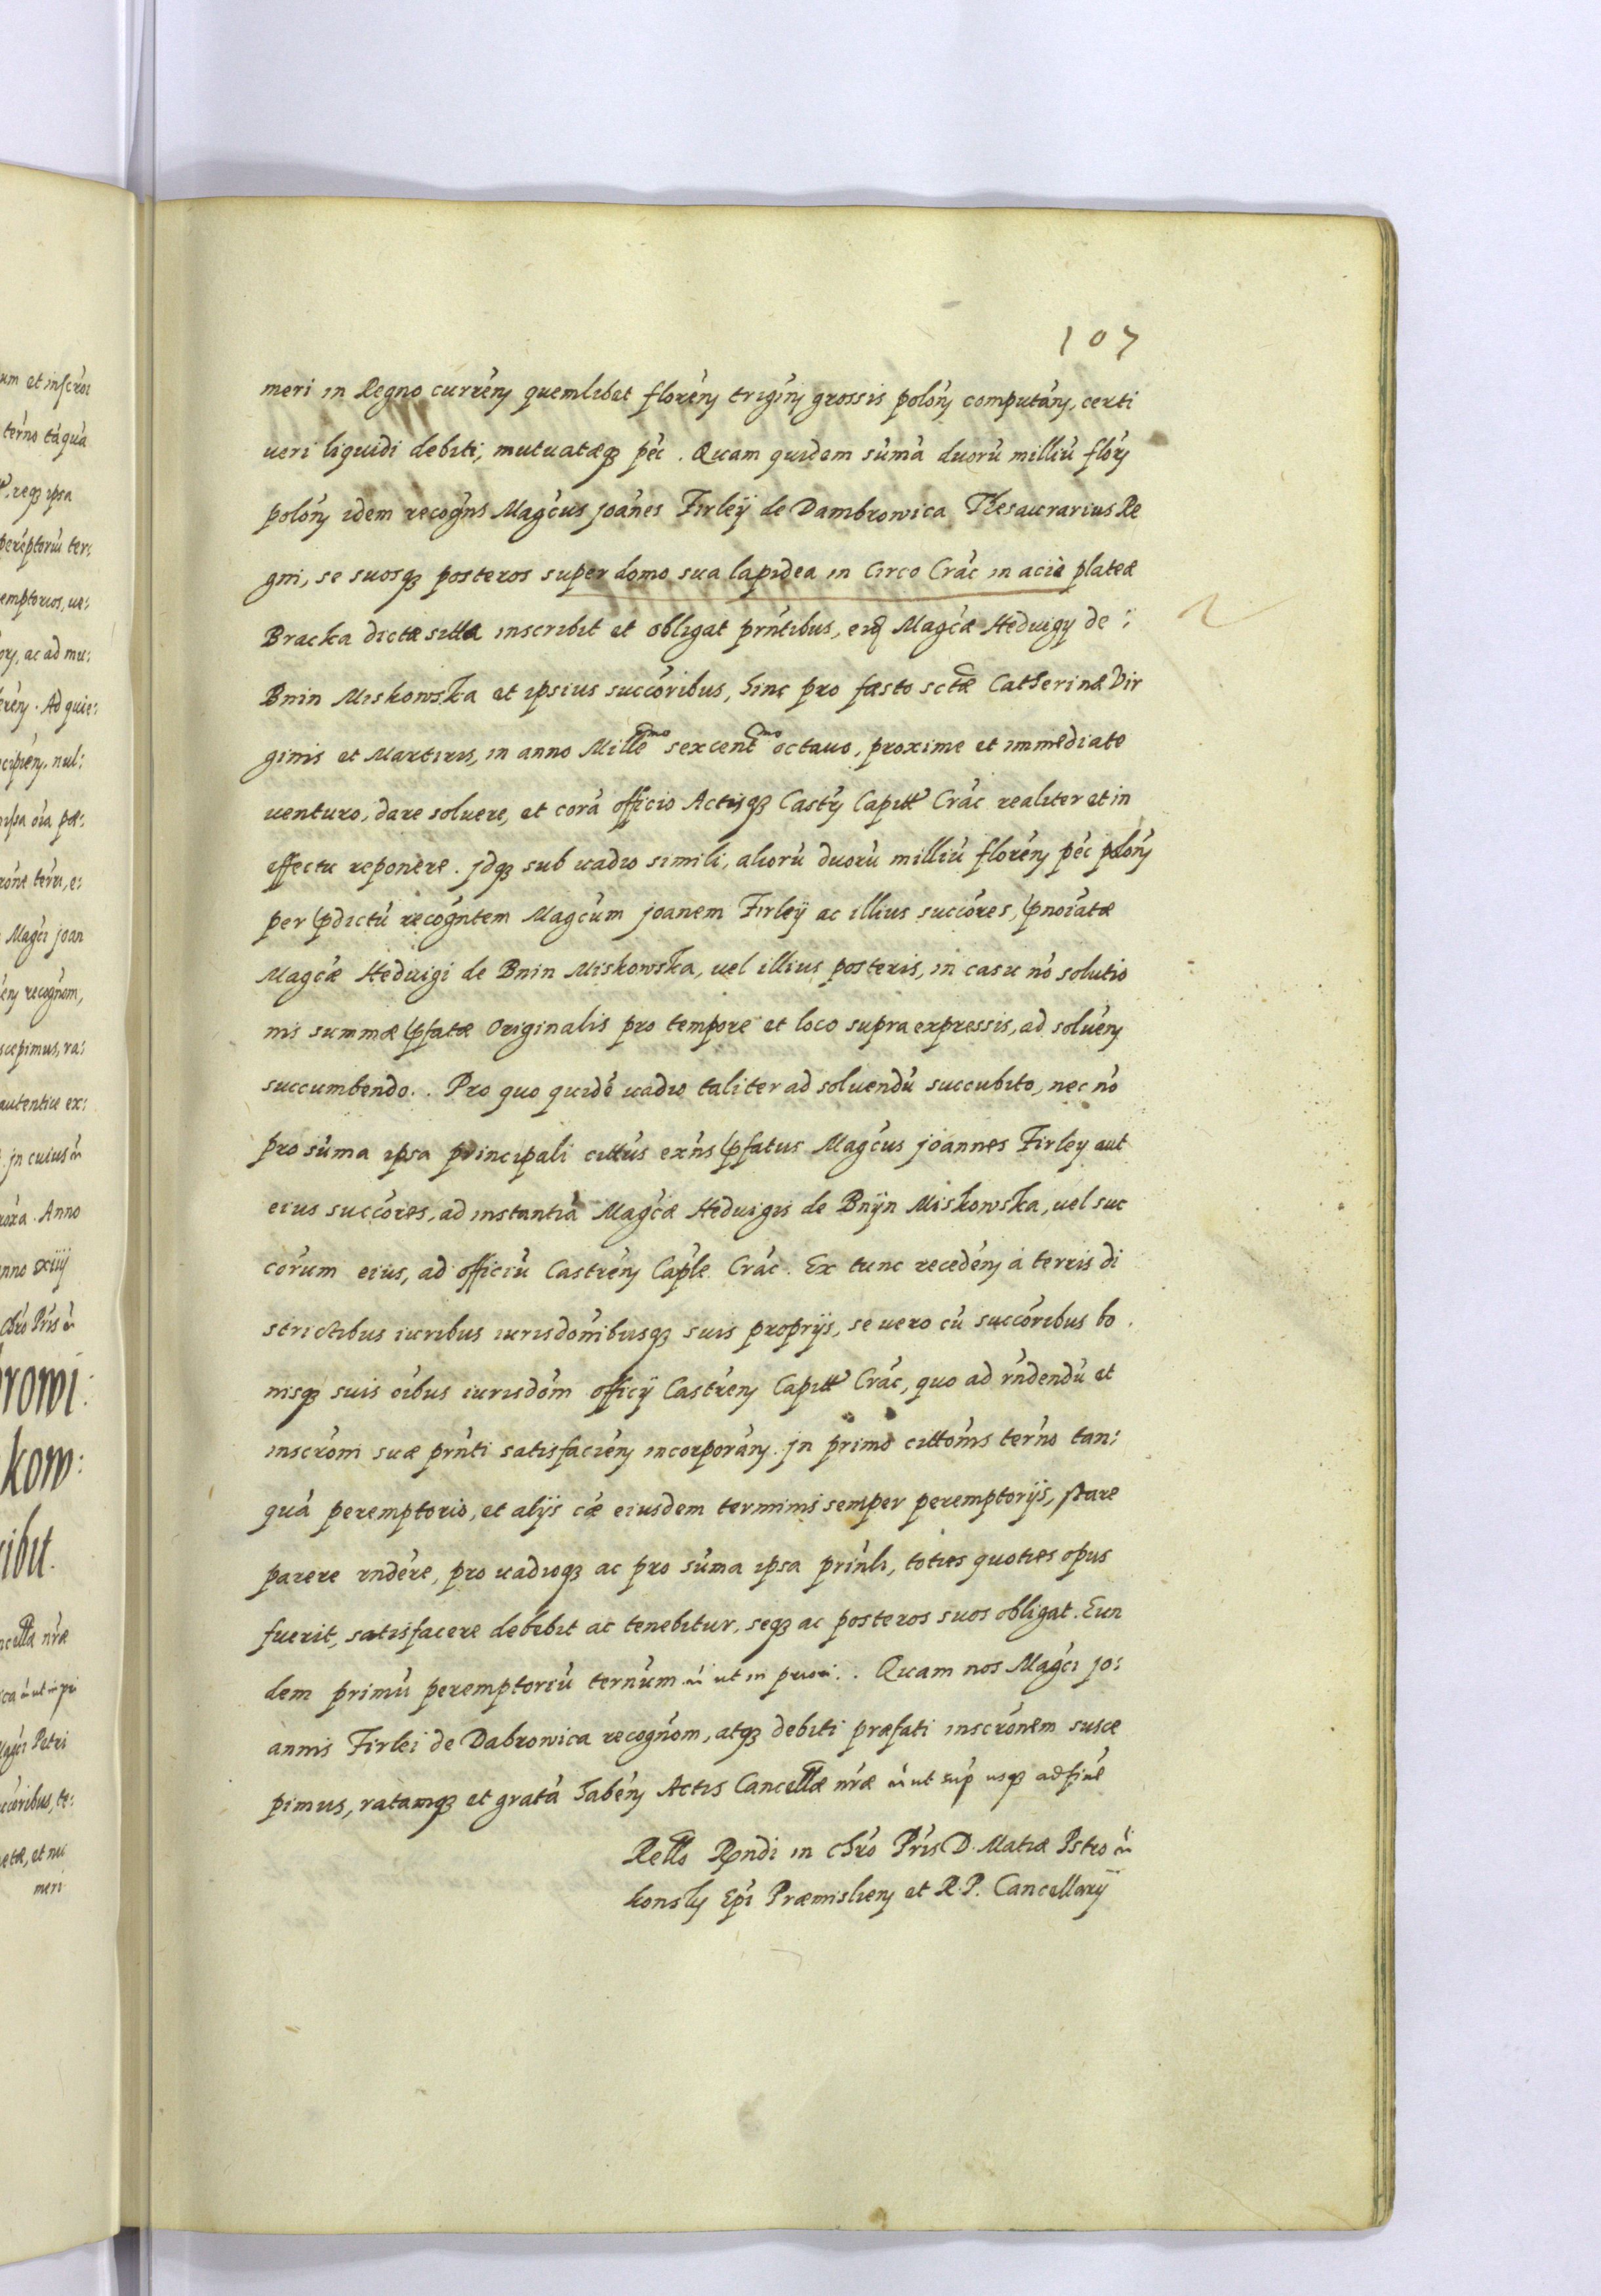 107
meri in Regno currēn quemlibet florēn trigin grossis polōn computān, certi
ueri liquidi debiti, mutuatæq₃ pec̄. Quam quidem sūmā duorū milliū flōrn
polōn idem recogn̄s Mag̃cus joānes Firleÿ de Dambrowica Thesaurarius Re
gni, se suosq₃ posteros super domo sua lapidea in Circo Crāc in acie plateæ
Bracka dictæ sittā inscribit et obligat prn̄tibus, eiq̃ Mag̃cæ Heduigy de :
Bnin Miskowska et ipsius succōribus, hinc pro fæsto sctæ Catherinæ Vir
ginis et Martiris, in anno Mille͠mo sexcent͠mo octauo, proxime et immediate
uenturo, dare soluere, et corā officio Actisq₃ Castrn̄ Capitt Crāc realiter et in
effectu reponere. jdq₃ sub uadio simili, aliorū duorū milliū florēn pec̄ polōn
per p̱dictū recogn̄tem Mag̃cum joanem Firleÿ ac illius succōres, p̱noiātæ
Mag̃cæ Heduigi de Bnin Miskowska, uel illius posteris, in casu nō solutio
nis summæ p̱fatæ originalis pro tempore et loco supra expressis, ad soluēn
succumbendo.. Pro quo quidē uadio taliter ad soluendū succubito, nec nō
pro sūma ipsa principali cittūs exn̄s p̱fatus Mag̃cus joannes Firley aut
eius succōres, ad instantiā Mag̃cæ Heduigis de Bnÿn Miskowska, uel suc
cōrum eius, ad officiū Castrēn Cap̄le Crāc. Ex tunc recedēn a terris di
strictibus iuribus iurisdōnibusq₃ suis proprijs, se uero cū succōribus bo
nisq₃ suis oībus iurisdōni officij Castrēn Capitt Crāc, quo ad rn̄dendū et
inscrōni suæ prn̄ti satisfaciēn incorporān. jn primo cittōnis ter̄no tan:
quā peremptorio, et alijs cāe eiusdem terminis semper peremptorijs, stare
parere rndēre, pro uadioq₃ ac pro sūma ipsa prin̄li, toties quoties opus
fuerit, satisfacere debebit ac tenebitur, seq₃ ac posteros suos obligat. Eun
dem primū peremptoriū ter̄num ū ut in priori.. Quam nos Mag̃ci jo:
annis Firlei de Dabrowica recognōm, atq₃ debiti præfati inscrōnem susce
pimus, ratamq₃ et gratā habēn Actis Cancellæ nr̄æ ū ut sup̄ usq₃ ad finē
Rello Rndi in chrō Prīs D. Matiæ Pstro ū
konsky Epī Præmislien et R.P. Cancellarij